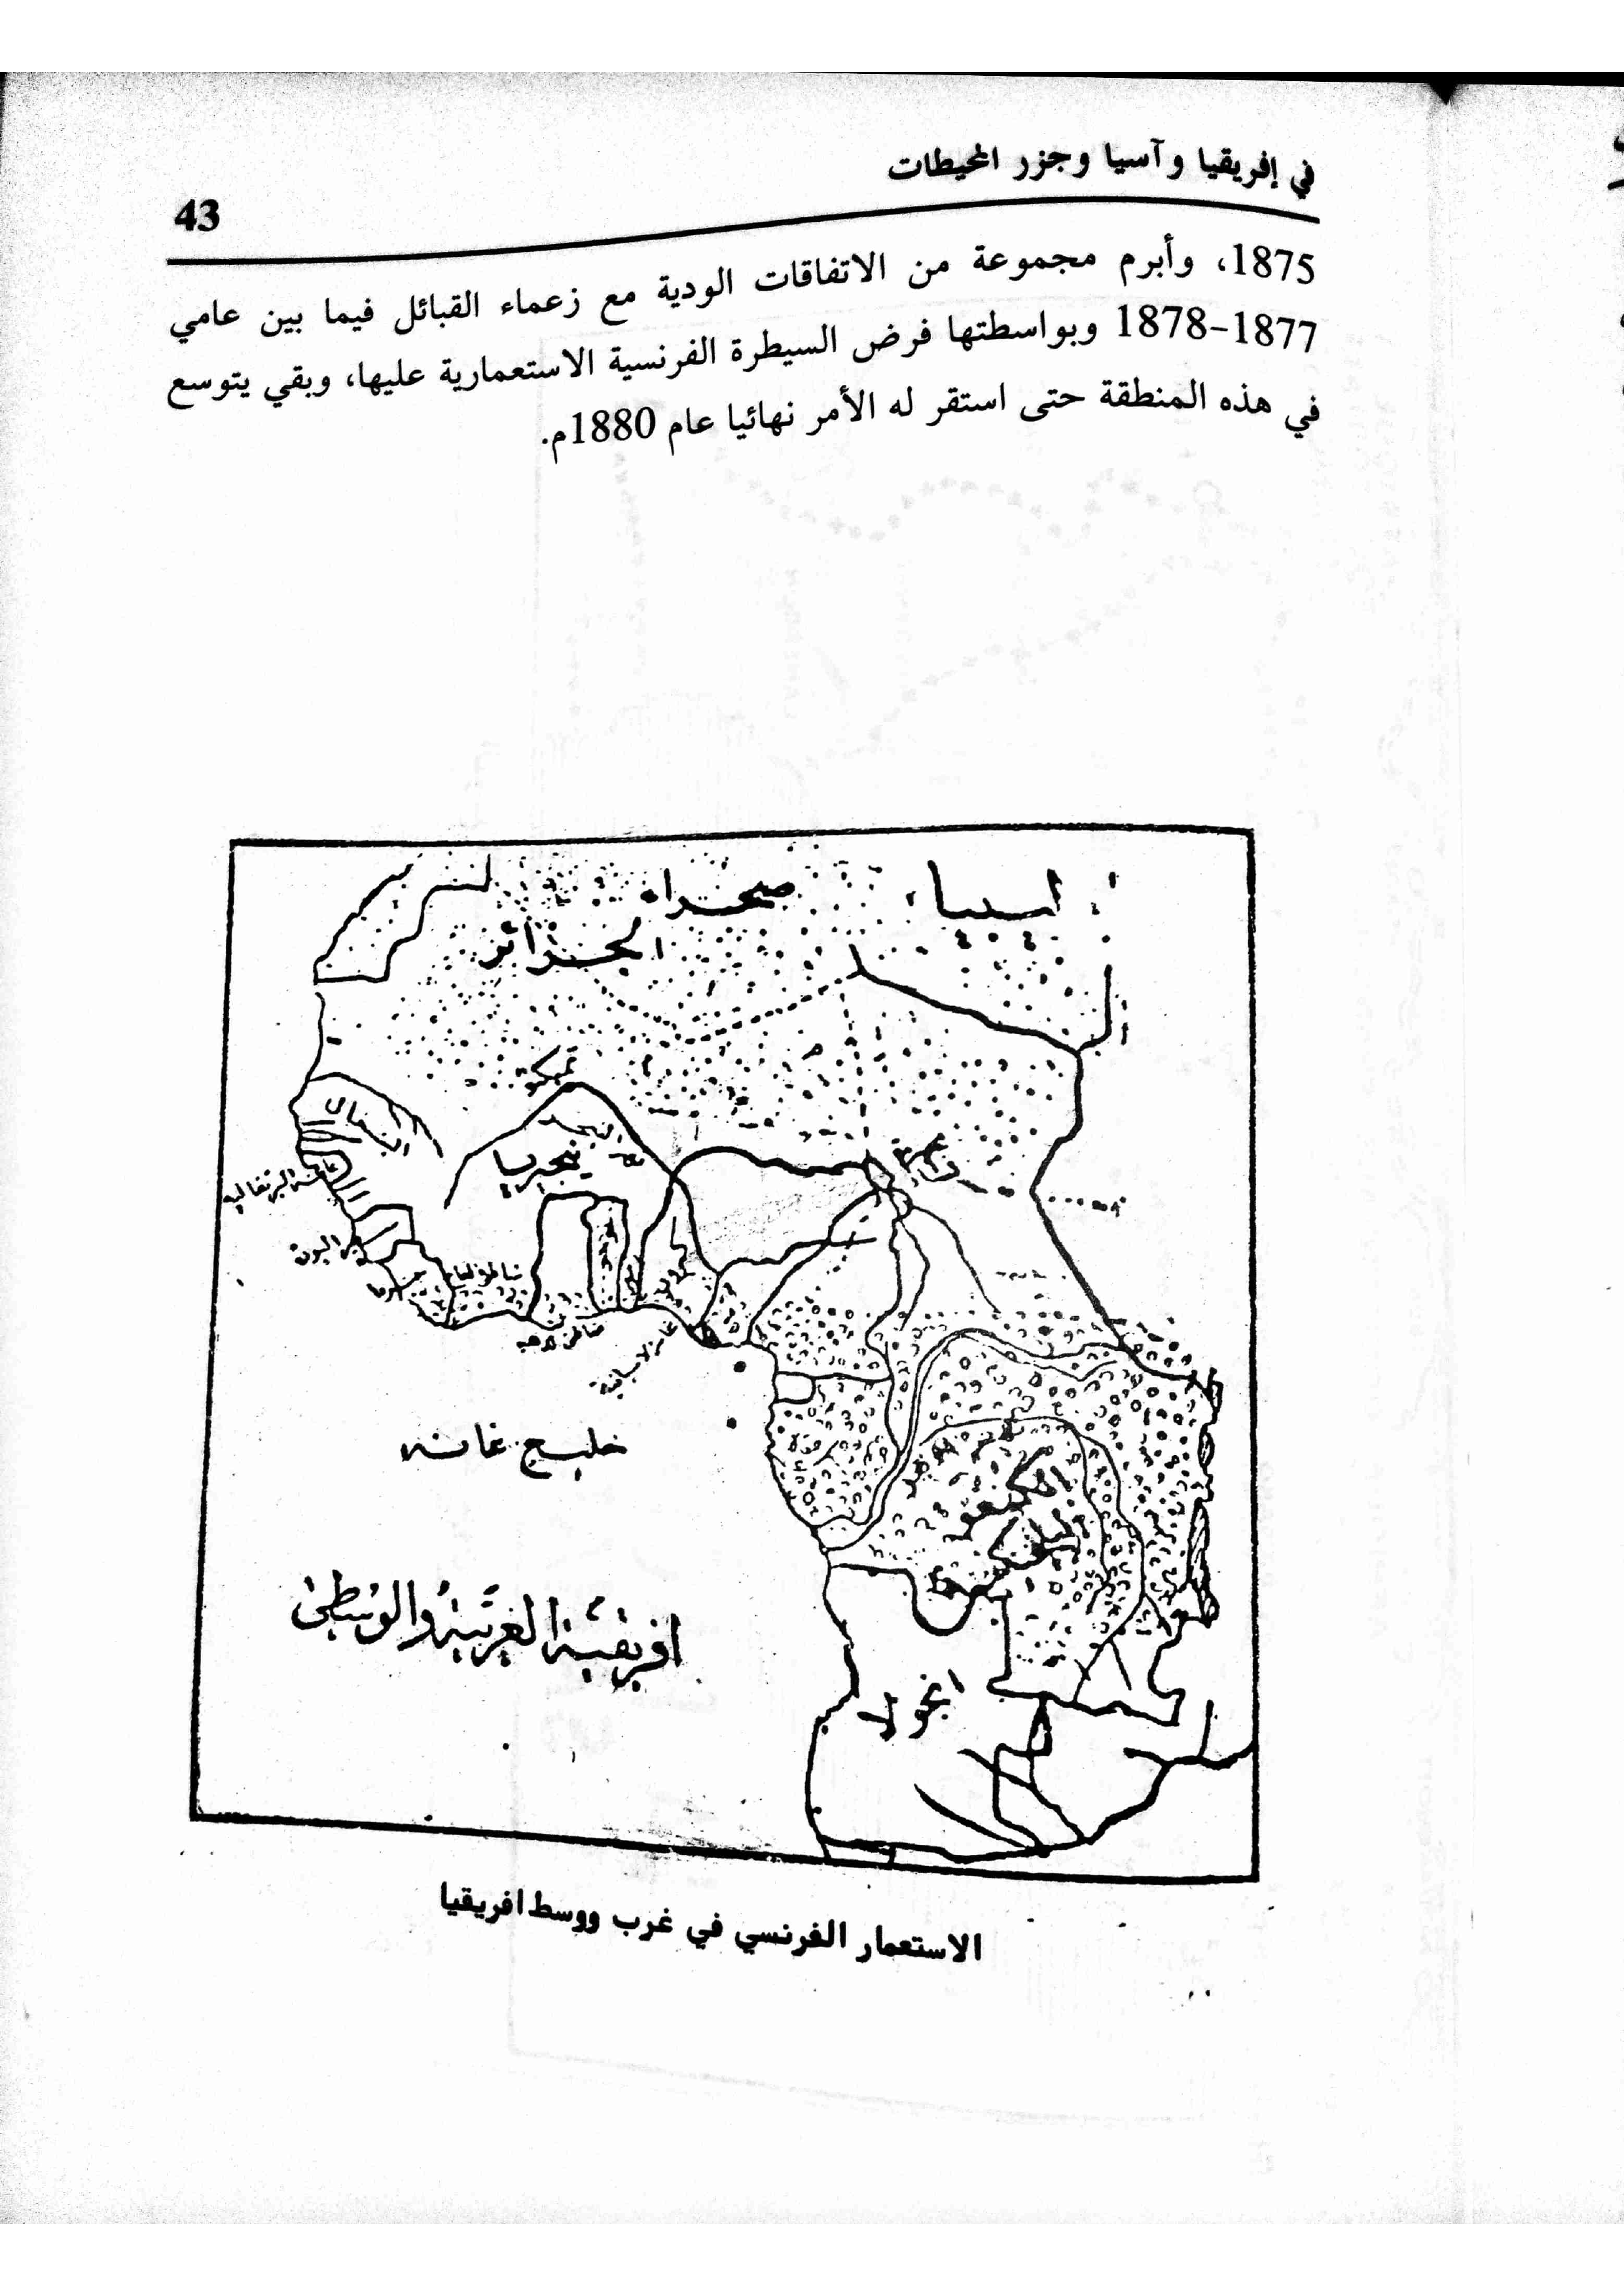 في إفريقيا وآسيا وجزر المحيطات
43
1875، وأبرم مجموعة من الاتفاقات الودية مع زعماء القبائل فيما بين عامي
1877-1878 وبواسطتها فرض السيطرة الفرنسية الاستعمارية عليها، وبقي يتوسع
في هذه المنطقة حتى استقر له الأمر نهائيا عام 1880م.
ليبيا
صحراء
الجزائر
تمبكتو
السنغال
نيجريا
خليج غانه
الكونغو
انجولا
افريقية الغربية والوسطى
الاستعمار الفرنسي في غرب ووسط افريقيا